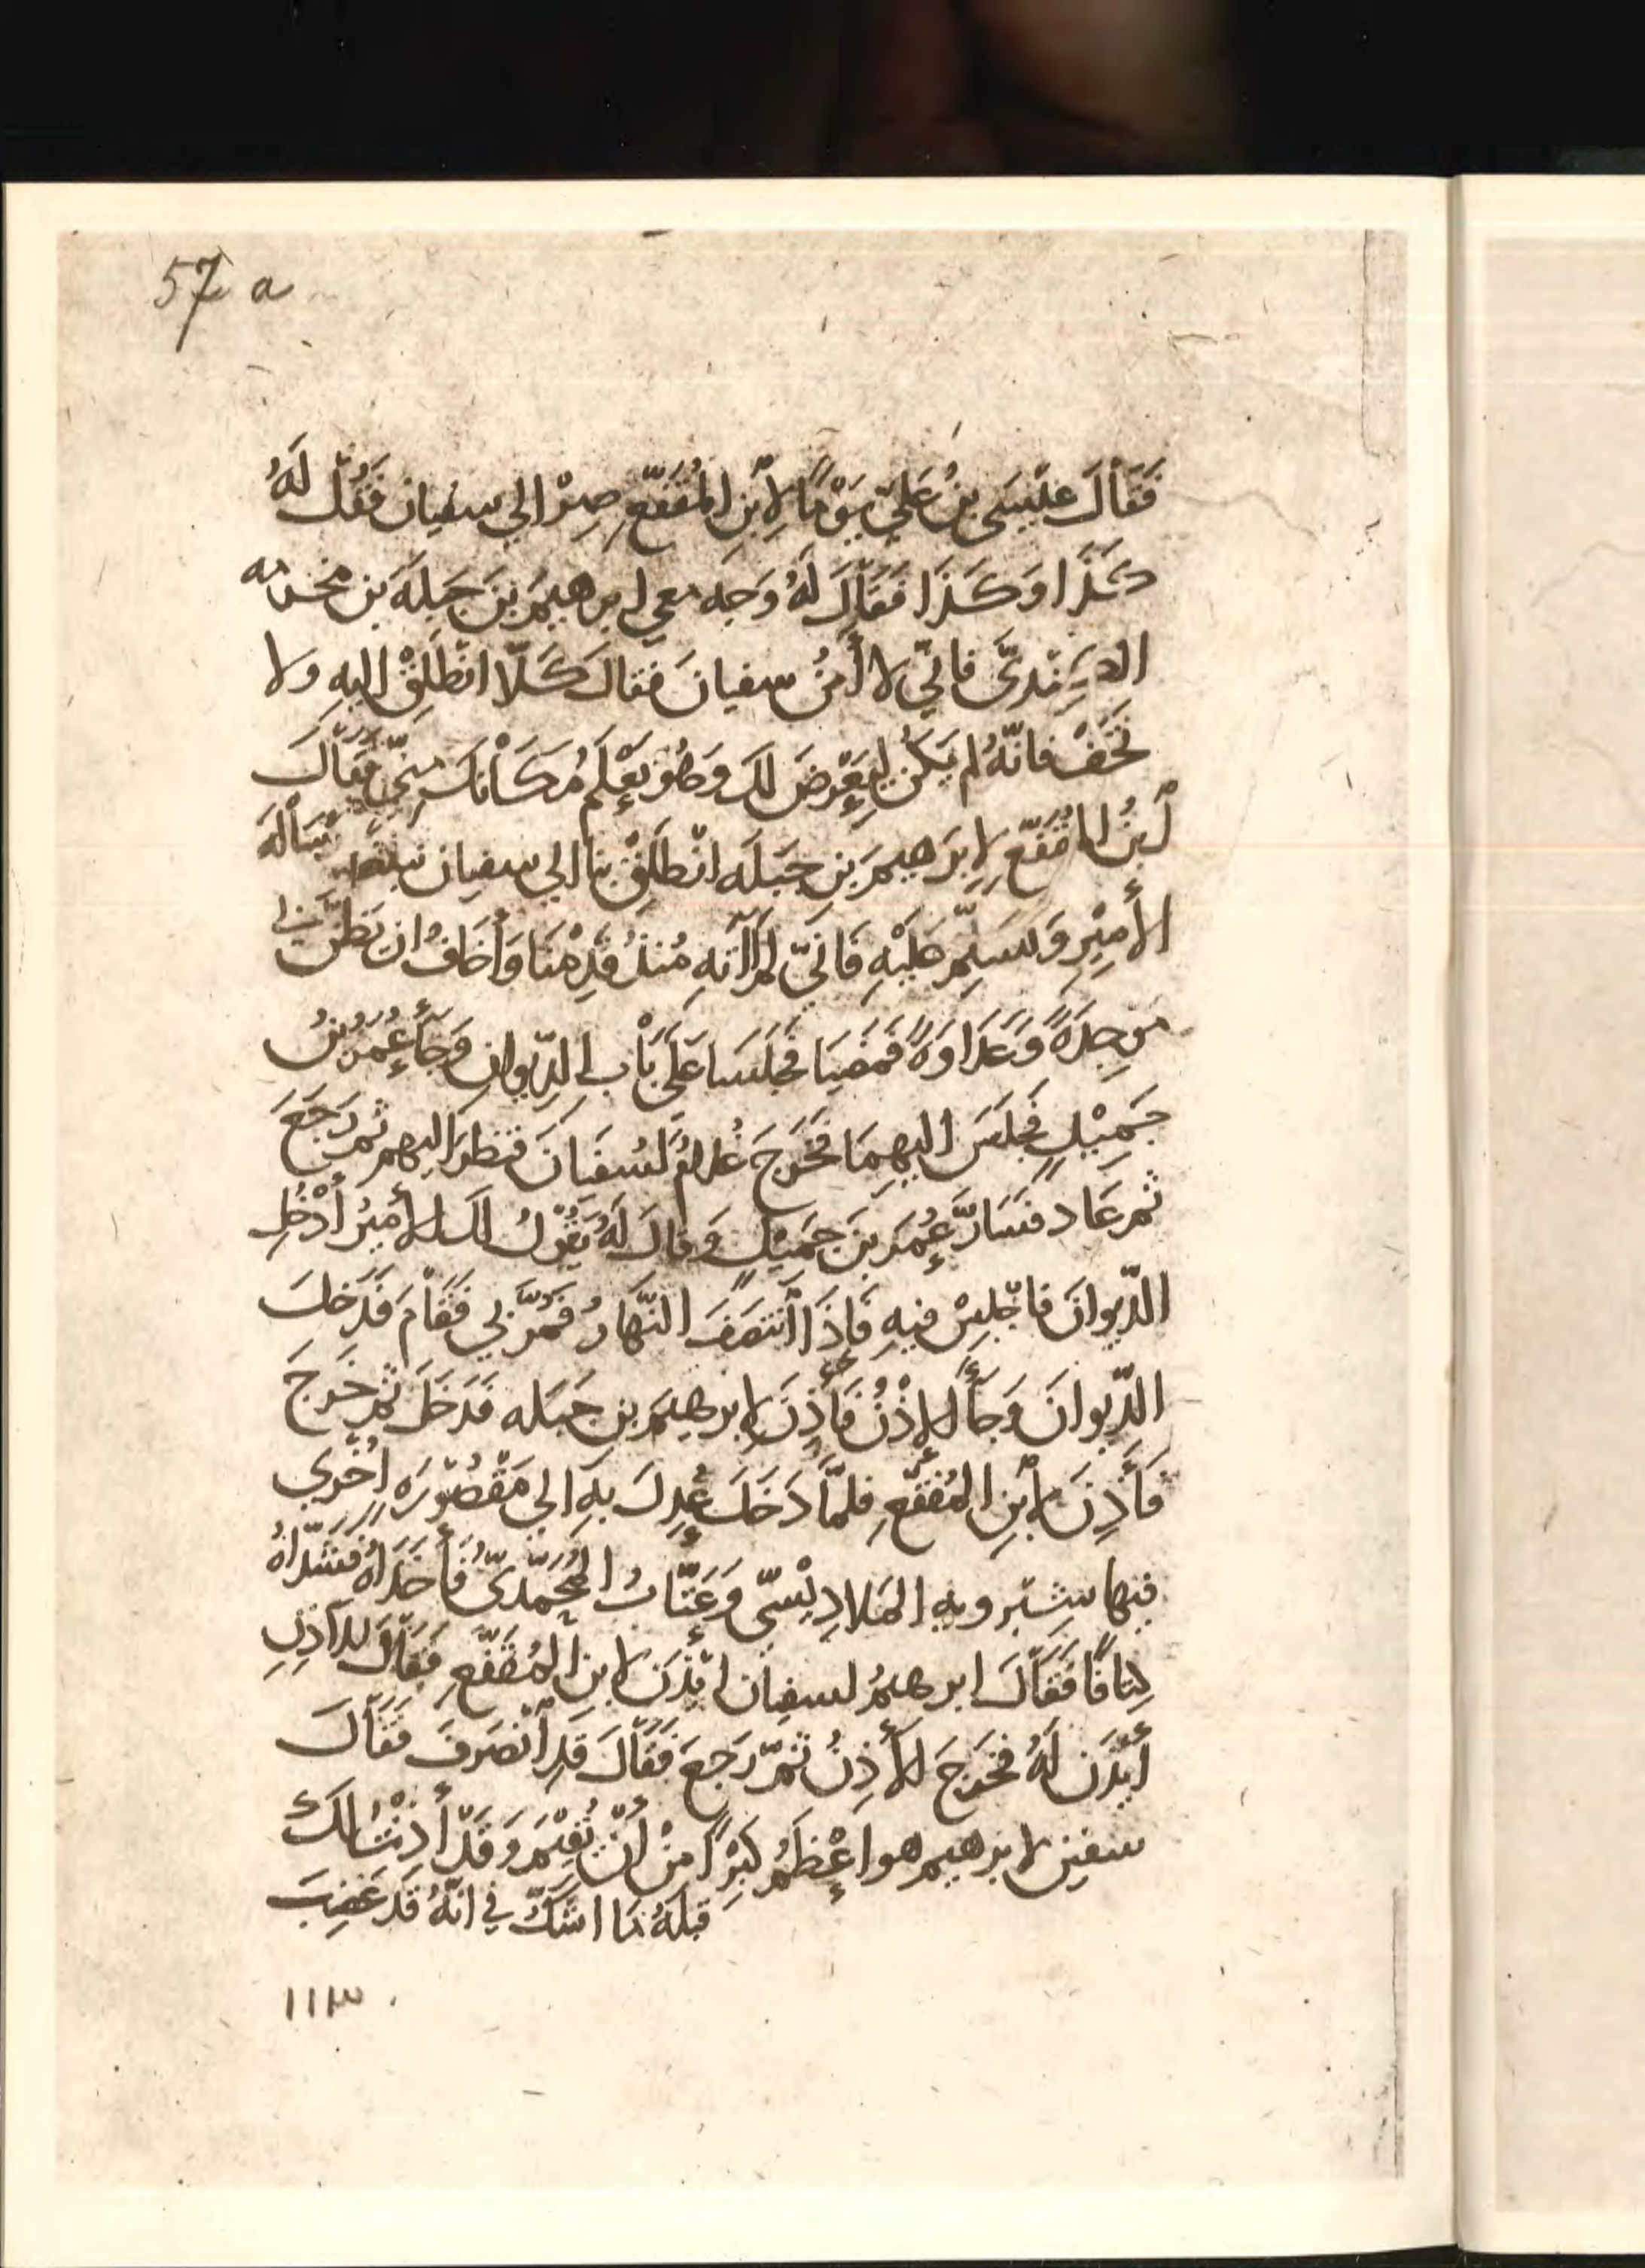 57 a
فَقَالَ عِيْسَى بنُ عَلِيّ يَوْمًا لِابْنِ المُقَفَّعِ صِرْ الي سفيان فَقُل لَهُ
كَذَا وَكَذَا فَقَالَ لَهُ وَجِه معي ابرهيمَ بنَ جَبَلَةَ بن مخرمه
الكِنْدىَّ فانّي لا أمَنُ سفيانَ فقال كَلّا انْطَلِقْ اليهِ ولا
تَخَفْ فانّهُ لم يَكُن لِيَعْرِضَ لك وَهُوَ يَعْلَمُ مَكَانَكَ مِنّي فَقَالَ
ابْنُ المُقَفَّعِ لِابرَهيمَ بنِ جَبَلَه انْطَلِقْ بنا الي سفيان رسالَةَ
الأَمِيْرِ وَنسَلِّم عَلَيْهِ فَانّي لَمْ اآتِهِ مُنذُ قَدِمْنَا وَأَخَافُ ان يَظُنَّ بي
مَوجِدَةً وَعَدَاوَةً فَمَضَيَا فَجَلَسَا عَلَى بَابِ الدِّيوانِ وَجَآءَ عُمَرُ بْنُ
جَمِيْلٍ فَجَلَسَ اليهِمَا فَخَرَجَ غُلامٌ لسُفيَانَ فنظرَ اليهم ثم رَجَعَ
ثم عَادَ فَسَارَّ عُمَرَ بنَ جَمِيْلٍ وَقالَ لَهُ يَقُوْلُ لك الأميرُ اُدْخُلِ
الدّيوانَ فاجْلِسْ فيهِ فَاِذَا انْتَصَفَ النّهَارُ فَمُرَّ بي فَقَامَ فَدَخَلَ
الدّيوانَ وَجَآءَ الاِذْنُ فَأَذِنَ لِابرهيمَ بنِ جَبَله فَدَخَلَ ثم خَرَجَ
فَأَذِنَ لِابْنِ المُقَفّعِ فلمَّا دَخَلَ عُدِلَ بِهِ الي مَقْصُوْرَهٍ اُخْرَي
فيها شِيْرويه المَلادِيْسِيّ وَعَتّابُ المُحَمَّدِيّ فَأَخَذَاهُ فَشَدّاهُ
كِتافًا فَقَالَ ابرهيمُ لسفيان ائْذَن لابنِ المُقَفّعِ فَقَالَ للآذِنِ
أيْذَن لَهُ فخَرَجَ الأذِنُ ثمّ رَجعَ فَقَالَ قَدِ انْصَرَفَ فَقَالَ
سفين لابرهيم هو اعْظَمُ كِبْرًا مِنْ اَنْ يُقِيْمَ وَقَدْ أَذِنْتُ لَكَ
قَبلَهُ مَا اشكّ في انّهُ قَد غَضِبَ
١١٣